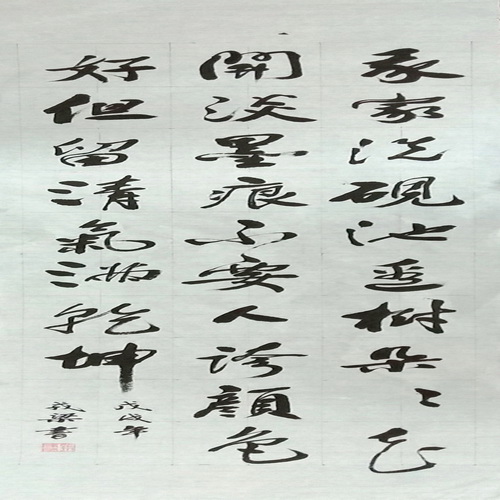 我家洗硯池邊樹朵〻花
開淡墨痕不要人誇顏色
好但留清氣滿乾坤
戊戌年
梁書